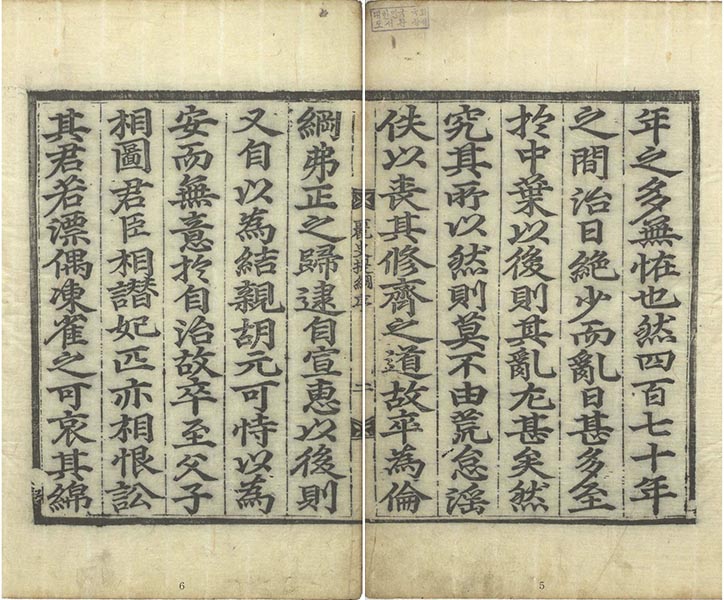 年之多無恠也然四百七十年
之間治日絶少而亂日甚多至
扵中葉以後則其亂尤甚矣然
究其所以然則莫不由荒怠滛
佚以喪其修齊之道故卒為倫
5
麗史提綱序 二
綱弗正之歸逮自宣惠以後則
又自以為結親胡元可恃以為
安而無意扵自治故卒至父子
相圖君臣相譛妃匹亦相恨訟
其君若漂偶凍雀之可哀其綿
6